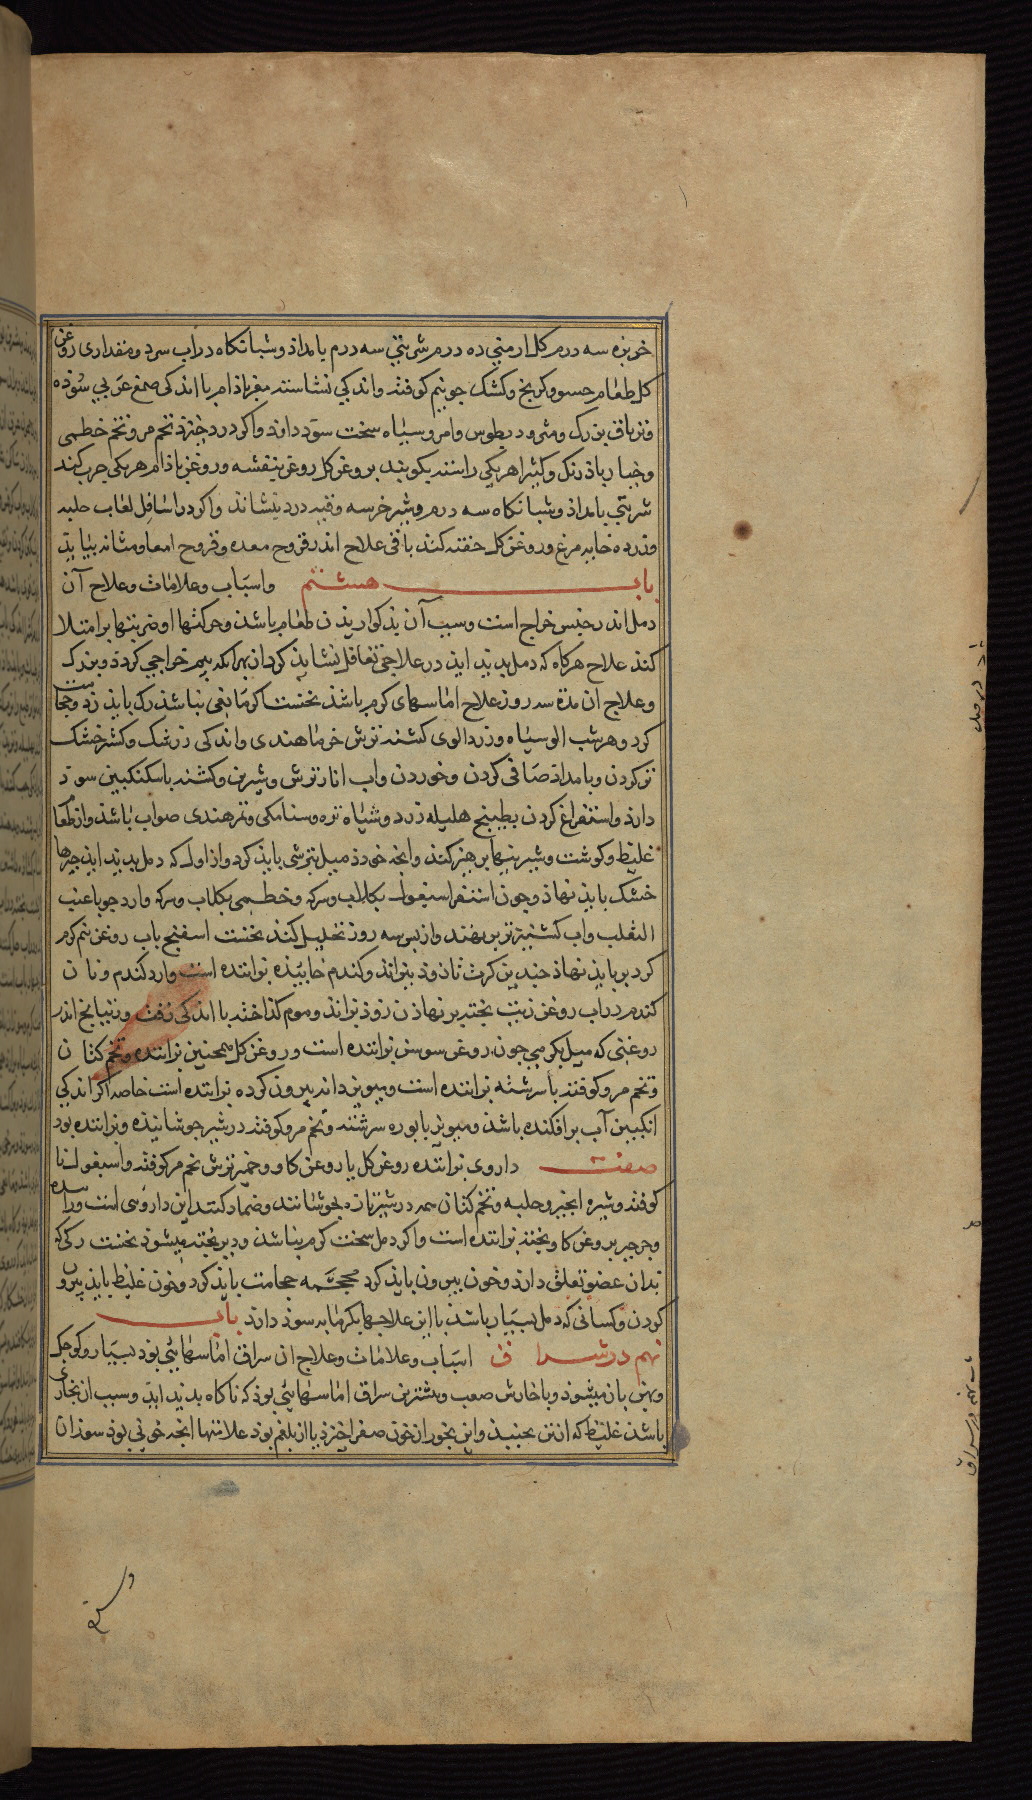 خربزه سه درم کل ارمنی ده درم شربتی سه درم بامداذ و شبانکاه در آب سرد و مقداری روغن
کل طعام حسو و کرنج و کشک جو نیم کوفته و اندکی نشاسته مغز باذام با اندکی صمغ عربی سوده
و تریاق بزرک و مثرودیطوس و امروسیاه سخت سوذ دارد و اکر درد جیزد تخم مرو تخم خطمی
و خیار باذرنک و کثیرا هر یکی راستد بکوبند بروغن کل روغن بنفشه و روغن باذام هر یکی جرب کنند
شربتی بامداذ و شبانکاه سه درم و شیر خر سه وقیه درد بنشاند و اکر در اسافل لعاب حلبه
و زرده خایه مرغ و روغن کل حقنه کنند باقی علاج اندر قروح معده و قروح امعا و مثانه بیاید
باب هستم و اسباب و علامات و علاج آن
دمل اندر جنس خراج است و سبب آن بذ کواریذن طعام باشد و حرکتها و ضربتها بر امتلا
کنند علاج هرکاه که دمل بدید اید در علاجی تغافل نشاید کردن بهر انکه بیم خراجی کردد و بزرک
و علاج ان مدة سه روز علاج اماسهای کرم باشد نخست اکر مانعی نباشد رک بایذ زد و حجامت
کرد و هر شب الو سیاه و زردالوی کشته ترش خرما هندی و اندکی زرشک و کشنیز خشک
تر کردن و بامداد صافی کردن و خوردن و اب انار ترش و شیرین و کشته با سکنکبین سوذ
دارذ و استفراغ کردن بطبیخ هلیله زرد و شیاه تره و سنامکی و تمرهندی صواب باشذ و از طعامها
غلیظ و کوشت و شیرینیها برهیز کنند و انجه خورد میل بترشی باید کرد و از اول که دمل بدید اید جیزها
خشک بایذ نهاذ و جون استفراغ اسبغول بکلاب و سرکه و خطمی بکلاب و سرکه و ارد جو باعنب
الثعلب و اب کشنیز تر بر نهند و از بس سه روز تحلیل کنند نخست اسفنج باب روغن نیم کرم
کرد بر بایذ نهاذ جندین کرت تا زوذ بزاند و کندم خاییذه بزاننده است و ارد کندم و نان
کندم در اب روغن زیت بخته بر نهاذن زوذ بزاند و موم کداخته با اندکی زفت و راتیانج اندر
روغنی که میل بکرمی جون روغن سوسن بزاننده است و روغن کل همجنین بزاننده و تخم کتان
و تخم مرو کوفته باسرشته بزاننده است و میویز دانه بیرون کرده بزاننده است خاصه اکر اندکی
انکبین آب بر افکنده باشد و میویز با بوره سرشته و تخم مرو کوفته در شیر جوشانیذه و بزاننده بود
صفت داروی بزاننده روغن کل یا روغن کاو و خمیر ترش تخم مر کوفته و اسبغول نا
کوفته و شیره انجیر و حلبه و تخم کتان همه در شیر تازه بجوشانند و ضماد کنند این داروی است و سده
و جرجیر بروغن کاو بخته بزاننده است و اکر دمل سخت کرم نباشد و دیر بخته میشوذ نخست رکی که
بدان عضو تعلق دارد و خون بیرون بایذ کرد حجامت بایذ کرد و خون غلیظ بایذ بیرون
کردن و کسانی که دمل بسیار باشد با این علاجها بکرمابه سوذ دارد باب
نهم در شرا ق اسباب و علامات و علاج ان سراق اماسهائی بود بسیار و کوجک
و بهن باز میشوذ و با خارش صعب و بیشترین سراق اماسهائی بوذ که ناکاه بدید اید و سبب ان بخاری
باشد غلیظ که از تن بجنبد و این بخور از خون صفرا خیزد یا از بلغم بود علامتها انجه خونی بود سوزان